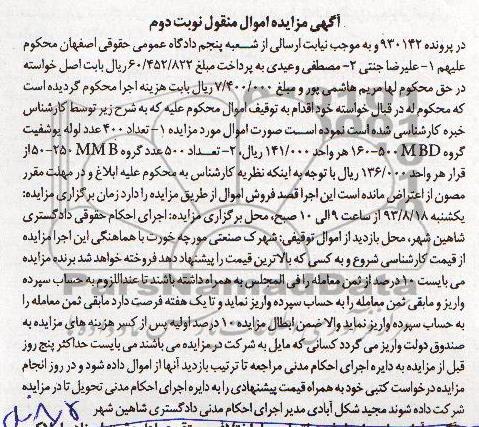 آگهی مزایده اموال منقول نوبت دوم
در پرونده ۹۳۰۱۴۲ و به موجب نیابت ارسالی از شعبه پنجم دادگاه عمومی حقوقی اصفهان محکوم
علیهم ۱- علیرضا جنتی ۲- مصطفی وعیدی به پرداخت مبلغ ۶۰/۴۵۲/۸۲۲ ریال بابت اصل خواسته
در حق محکوم لها مریم هاشمی پور و مبلغ ۷/۴۰۰/۰۰۰ ریال بابت هزینه اجرا محکوم گردیده است
که محکوم له در قبال خواسته خود اقدام به توقیف اموال محکوم علیه که به شرح زیر توسط کارشناس
خبره کارشناسی شده است نموده است صورت اموال مورد مزایده ۱- تعداد ۴۰۰ عدد لوله پوشفیت
گروه MBD ۱۶۰-۵۰۰ هر واحد ۱۴۱/۰۰۰ ریال، ۲- تعداد ۵۰۰ عدد گروه MMB ۲۵۰-۵۰ از
قرار هر واحد ۱۳۶/۰۰۰ ریال با توجه به اینکه نظریه کارشناس به محکوم علیه ابلاغ و در مهلت مقرر
مصون از اعتراض مانده است این اجرا قصد فروش اموال از طریق مزایده را دارد زمان برگزاری مزایده:
یکشنبه ۹۳/۸/۱۸ از ساعت ۹ الی ۱۰ صبح، محل برگزاری مزایده: اجرای احکام حقوقی دادگستری
شاهین شهر، محل بازدید از اموال توقیفی: شهرک صنعتی مورچه خورت با هماهنگی این اجرا مزایده
از قیمت کارشناسی شروع و به کسی که بالاترین قیمت را پیشنهاد دهد فروخته خواهد شد برنده مزایده
می بایست ۱۰ درصد از ثمن معامله را فی المجلس به همراه داشته باشند تا عنداللزوم به حساب سپرده
واریز و مابقی ثمن معامله را به حساب سپرده واریز نماید و تا یک هفته فرصت دارد مابقی ثمن معامله را
به حساب سپرده واریز نماید والا ضمن ابطال مزایده ۱۰ درصد اولیه پس از کسر هزینه های مزایده به
صندوق دولت واریز می گردد کسانی که مایل به شرکت در مزایده می باشند می بایست حداکثر پنج روز
قبل از مزایده به دایره اجرای احکام مدنی مراجعه تا ترتیب بازدید آنها از اموال داده شود و در روز انجام
مزایده درخواست کتبی خود به همراه قیمت پیشنهادی را به دایره اجرای احکام مدنی تحویل تا در مزایده
شرکت داده شوند مجید شکل آبادی مدیر اجرای احکام مدنی دادگستری شاهین شهر